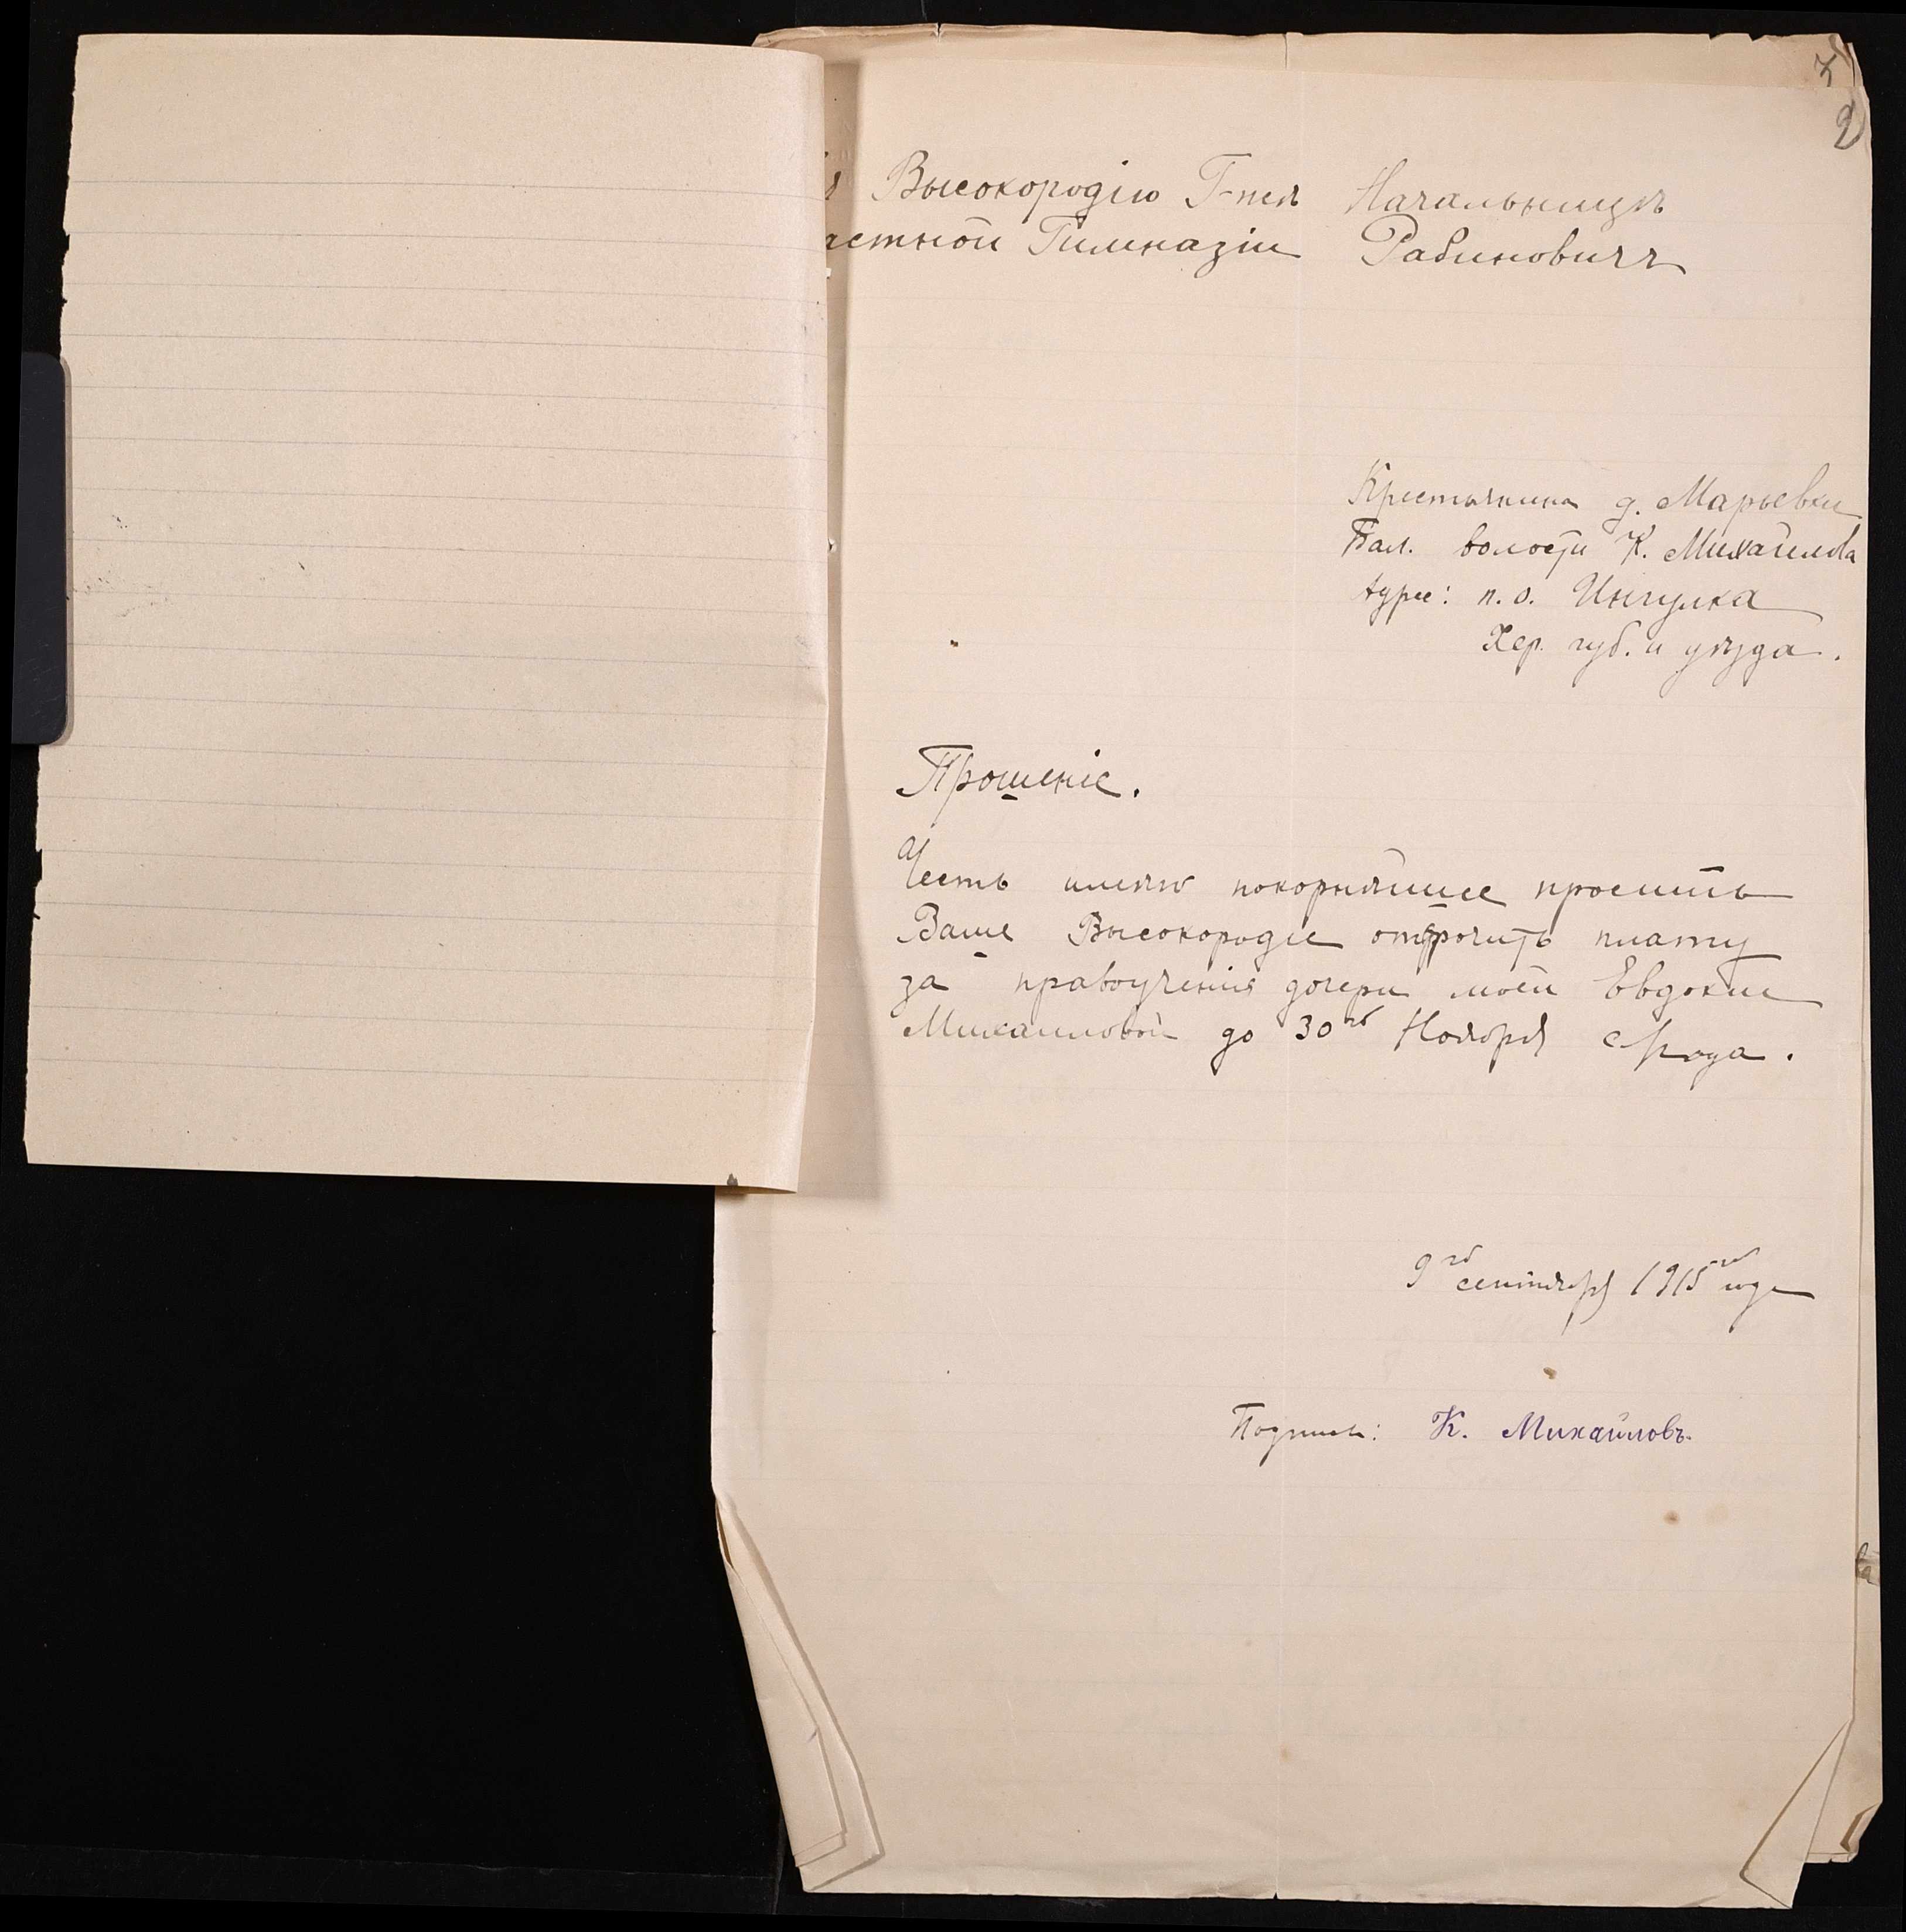 2
Высокородію Г-жѣ Начальницѣ
астной Гимназіи Рабиновичъ
Крестьянина д. Марьевки
Бал. волости К. Михайлова
Адрес: п. о. Ингулка
Хер. губ. и уѣзда.
Прошеніе.
Честь имѣю покорнѣйше просить
Ваше Высокородіе отсрочить плату
за правоученія дочери моей Евдокии
Михайловой до 30го Ноября с/года.
9го сентября 1915го года
Подпись: К. Михайловъ.